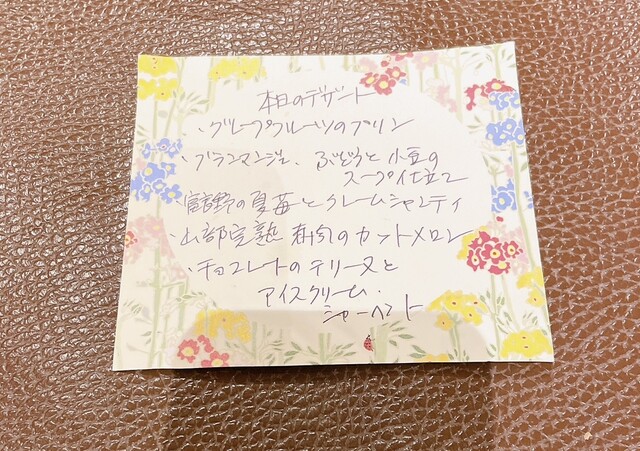 本日のデザート
・グループフルーツのプリン
・ブランマンジェ、ぶどうと小豆の
スープ仕立て
・富良野の夏苺とクレームシャンティ
・山部完熟 赤肉のカットメロン
・チョコレートのテリーヌと
アイスクリーム・
シャーベット